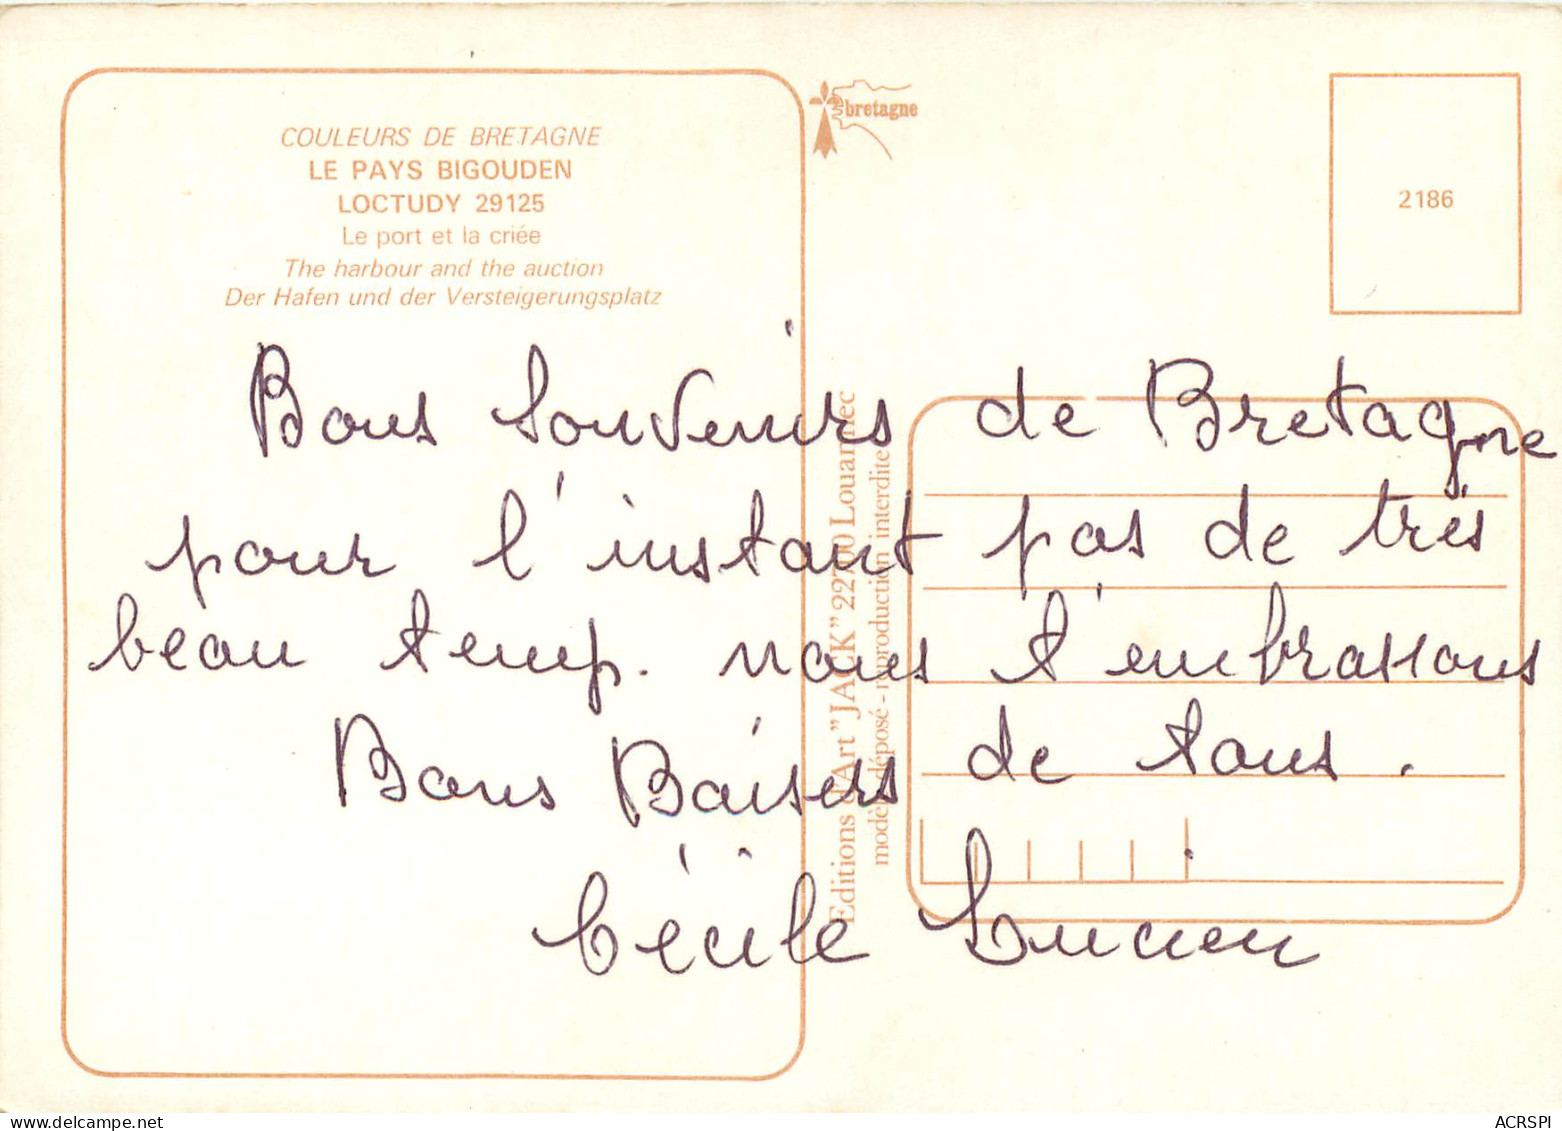 COULEURS DE BRETAGNE
LE PAYS BIGOUDEN
LOCTUDY 29125
Le port et la criée
The harbour and the auction
Der Hafen und der Versteigerungsplatz
bretagne
2186
Editions d'Art "JACK" 22700 Louannec
modèle déposé - reproduction interdite
Bons Souvenirs de Bretagne
pour l'instant pas de très
beau temp. nous t'embrassons
Bons Baisers de tous.
Cécile Lucien
ACRSPI